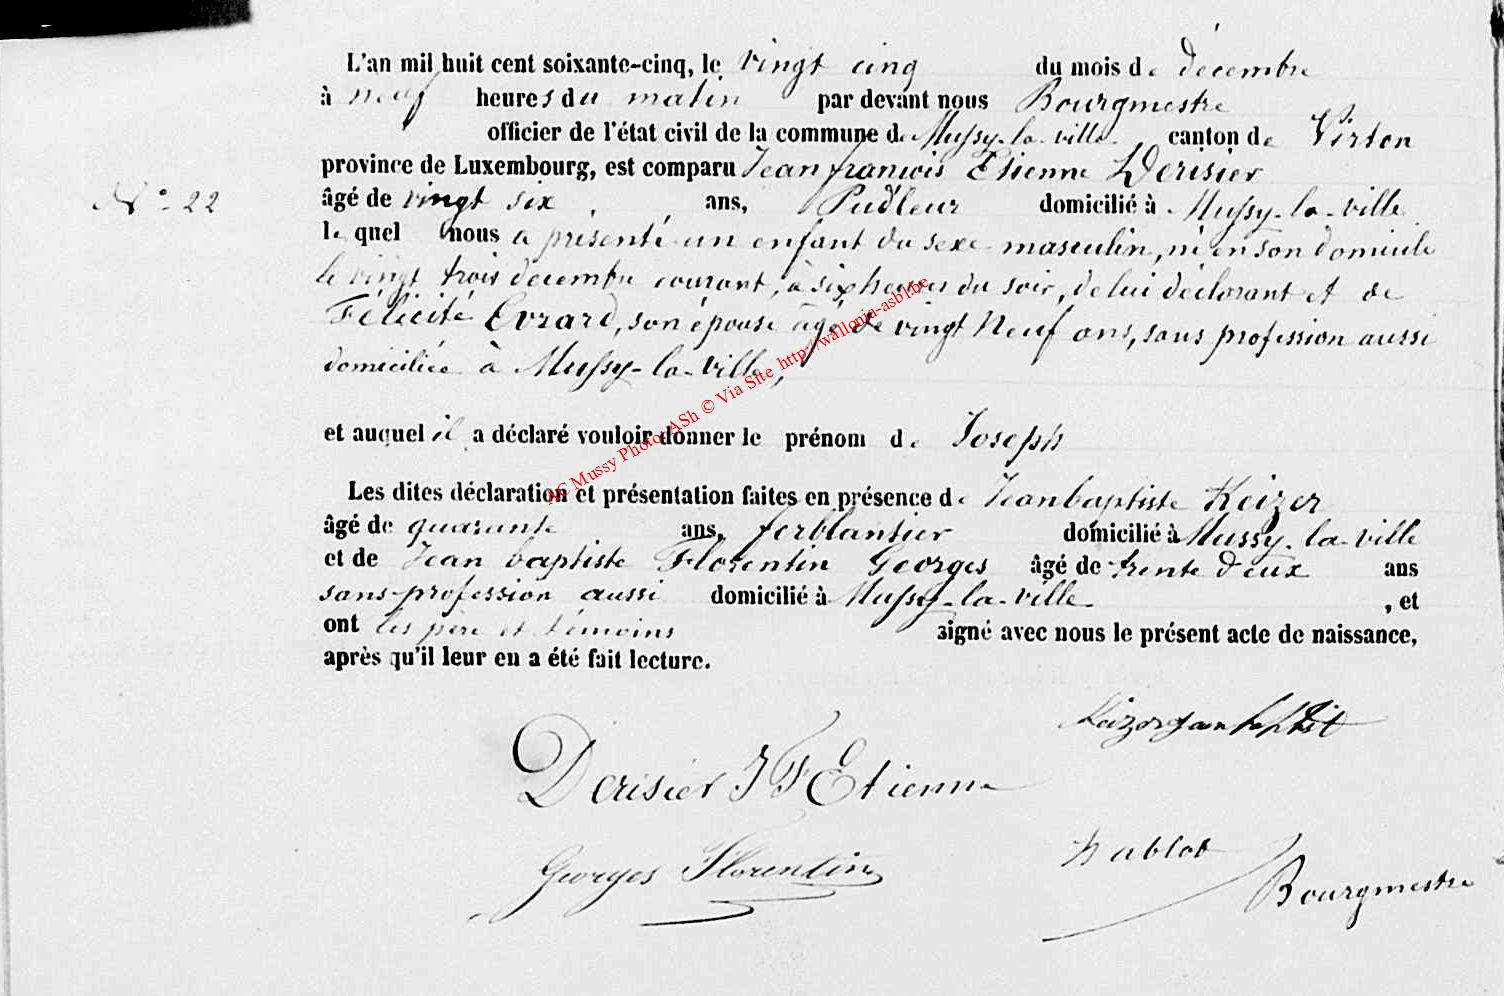 L'an mil huit cent soixante-cinq, le vingt cinq du mois de décembre
à neuf heures du matin par devant nous Bourgmestre
officier de l'état civil de la commune de Mussy-la-ville canton de Virton
province de Luxembourg, est comparu Jean françois Etienne Derisier
N° 22
âgé de vingt six ans, Pudleur domicilié à Mussy-la-ville
lequel nous a présenté un enfant du sexe masculin, né en son domicile
le vingt trois décembre courant, à six heures du soir, de lui déclarant et de
Félicité Evrard, son épouse âgée de vingt Neuf ans, sans profession aussi
domiciliée à Mussy-la-ville,
et auquel il a déclaré vouloir donner le prénom de Joseph
Les dites déclaration et présentation faites en présence de Jeanbaptiste Keizer
âgé de quarante ans, ferblantier domicilié à Mussy-la-ville
et de Jean baptiste Florentin Georges âgé de trente deux ans
sans profession aussi domicilié à Mussy-la-ville , et
ont les père et témoins signé avec nous le présent acte de naissance,
après qu'il leur en a été fait lecture.
AC Mussy Photo: ASh © Via Site http://wallonia-asbl.be
Keizer jean
Derisier J F Etienne
Georges Florentin
hablot
Bourgmestre